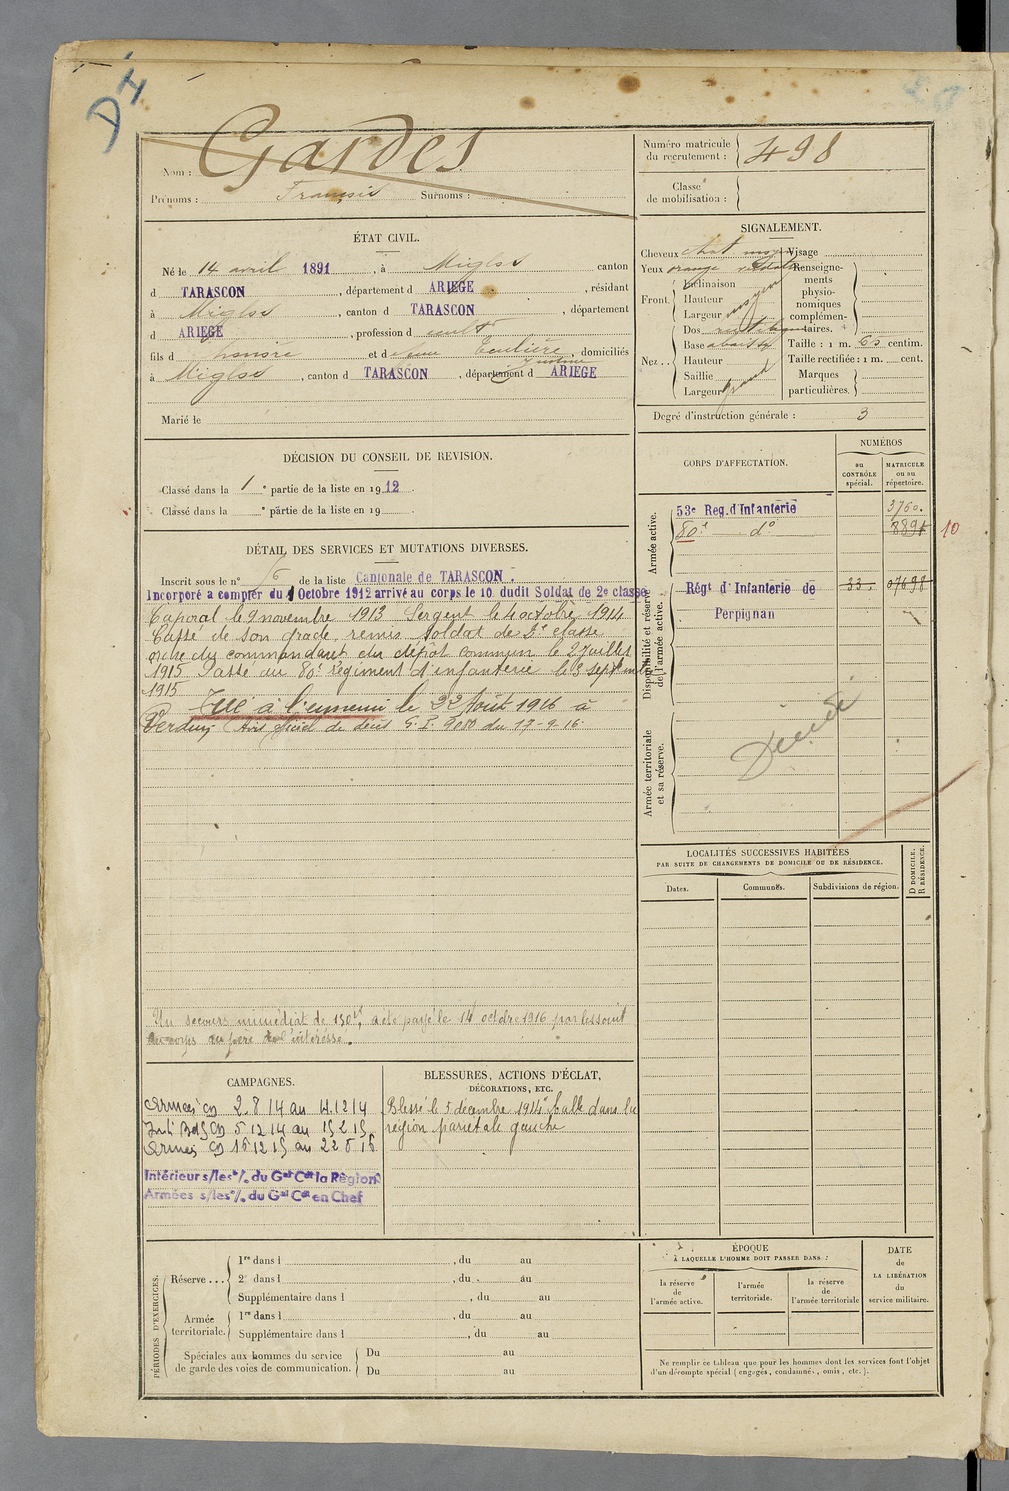 DI
Nom : Gardes
Prénoms : François Surnoms :
Numéro matricule du recrutement : 498
Classe de mobilisation :
ÉTAT CIVIL.
Né le 14 avril 1891, à Miglos canton
d TARASCON, département d ARIEGE, résidant
à Miglos, canton d TARASCON, département
d ARIEGE, profession de cultr
fils d honoré et de feue Teulière Justine, domiciliés
à Miglos, canton d TARASCON, département d ARIEGE
Marié le
SIGNALEMENT.
Cheveux chat moyen Visage
Yeux orange
Front. Inclinaison
Hauteur
Largeur moyen
Nez.. Dos rectiligne
Base abaissée
Hauteur
Saillie
Largeur grand
Renseignements physionomiques complémentaires.
Taille : 1 m. 63 centim.
Taille rectifiée : 1 m. cent.
Marques particulières.
Degré d'instruction générale : 3
DÉCISION DU CONSEIL DE REVISION.
Classé dans la 1e partie de la liste en 1912.
Classé dans la e partie de la liste en 19
DÉTAIL DES SERVICES ET MUTATIONS DIVERSES.
Inscrit sous le n° 16 de la liste Cantonale de TARASCON.
Incorporé a compter du 1 Octobre 1912 arrivé au corps le 10 dudit Soldat de 2e classe
Caporal le 9 novembre 1913 Sergent le 4 octobre 1914
Cassé de son grade remis soldat de 2e classe
ordre du commandant du dépôt commun le 2 Juillet
1915 Passé au 80e Régiment d'infanterie le 3 septembre
1915
Tué à l'ennemi le 22 Août 1916 à
Verdun, Avis officiel de décès G. P. du 17-9-16.
Un secours immédiat de 150f, a été payé le 14 octobre 1916 par les soins
du corps au père de l'intéressé.
CORPS D'AFFECTATION.
NUMÉROS
au CONTRÔLE spécial.
MATRICULE ou au répertoire.
Armée active.
53e Reg. d'Infanterie 3760.
80e do 8891 10
Disponibilité et réserve de l'armée active.
Régt d'Infanterie de 33. 07698
Perpignan
Armée territoriale et sa réserve.
Décédé
LOCALITÉS SUCCESSIVES HABITÉES
PAR SUITE DE CHANGEMENTS DE DOMICILE OU DE RÉSIDENCE.
Dates. Communes. Subdivisions de région. D DOMICILE. R RÉSIDENCE.
CAMPAGNES.
Armées CD 2.8.14 au 4.12.14
Intr Bd CD 5 12 14 au 15 2 15
Armées CD 16 12 15 au 22 8 16
Intérieur s/les °/. du Gal Cdt la Région
Armées s/les °/. du Gal Cdt en Chef
BLESSURES, ACTIONS D'ÉCLAT,
DÉCORATIONS, ETC.
Blessé le 5 décembre 1914 balle dans la
région pariétale gauche
PÉRIODES D'EXERCICES.
Réserve ... 1re dans l , du au
2e dans l , du au
Supplémentaire dans l , du au
Armée territoriale. 1re dans l , du au
Supplémentaire dans l , du au
Spéciales aux hommes du service de garde des voies de communication. Du au
Du au
ÉPOQUE
À LAQUELLE L'HOMME DOIT PASSER DANS :
la réserve de l'armée active.
l'armée territoriale.
la réserve de l'armée territoriale
DATE de LA LIBÉRATION du service militaire.
Ne remplir ce tableau que pour les hommes dont les services font l'objet
d'un décompte spécial (engagés, condamnés, omis, etc.).